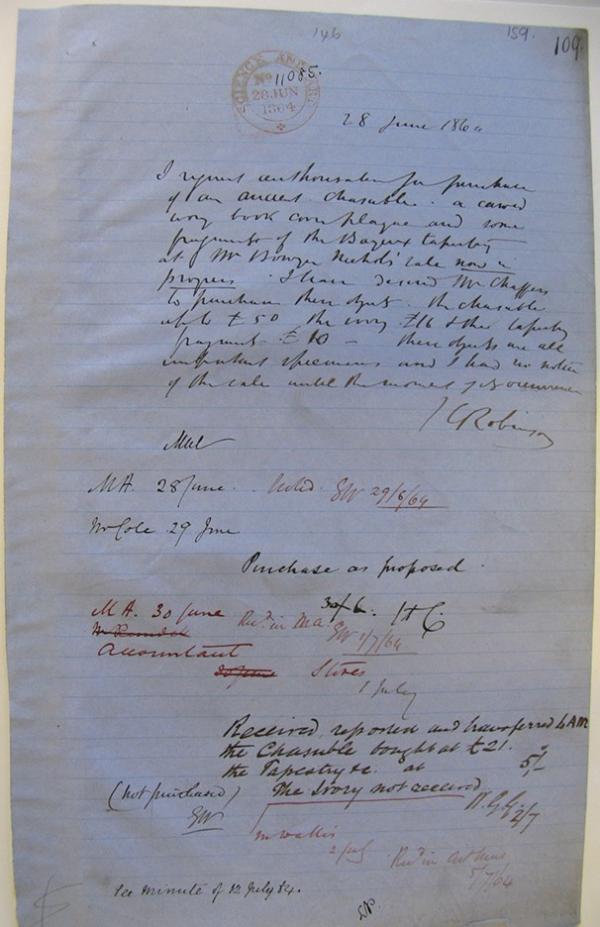 146 159. 109.
SCIENCE AND ART
No 11085.
28 JUN
1864
28 June 1864
I request authorisation for purchase
of an ancient chasuble. a carved
ivory book cover plaque and some
fragments of the Bayeux tapestry
at Mr Bowyer Nichols' sale now in
progress. I have desired Mr Chaffers
to purchase these objects. the chasuble
up to £50 the ivory £16 & the tapestry
fragments £10 — these objects are all
important specimens and I had no notice
of the sale until the moment of its occurrence
J C Robinson
MA. 28 June. Noted. GW 29/6/64
Mr Cole 29 June
Purchase as proposed.
MA. 30 June 30/6. HC
Recd in MA. GW 1/7/64
Accountant
30 June Stores
1 July
Received, reported and transferred to AM
the Chasuble bought at £21.
the Tapestry &c. at 5/-
(not purchased) The Ivory not received
GW 2/7
Mr Wallis
2 July Recd in Art Mus
5/7/64
See minute of 12 July 64.